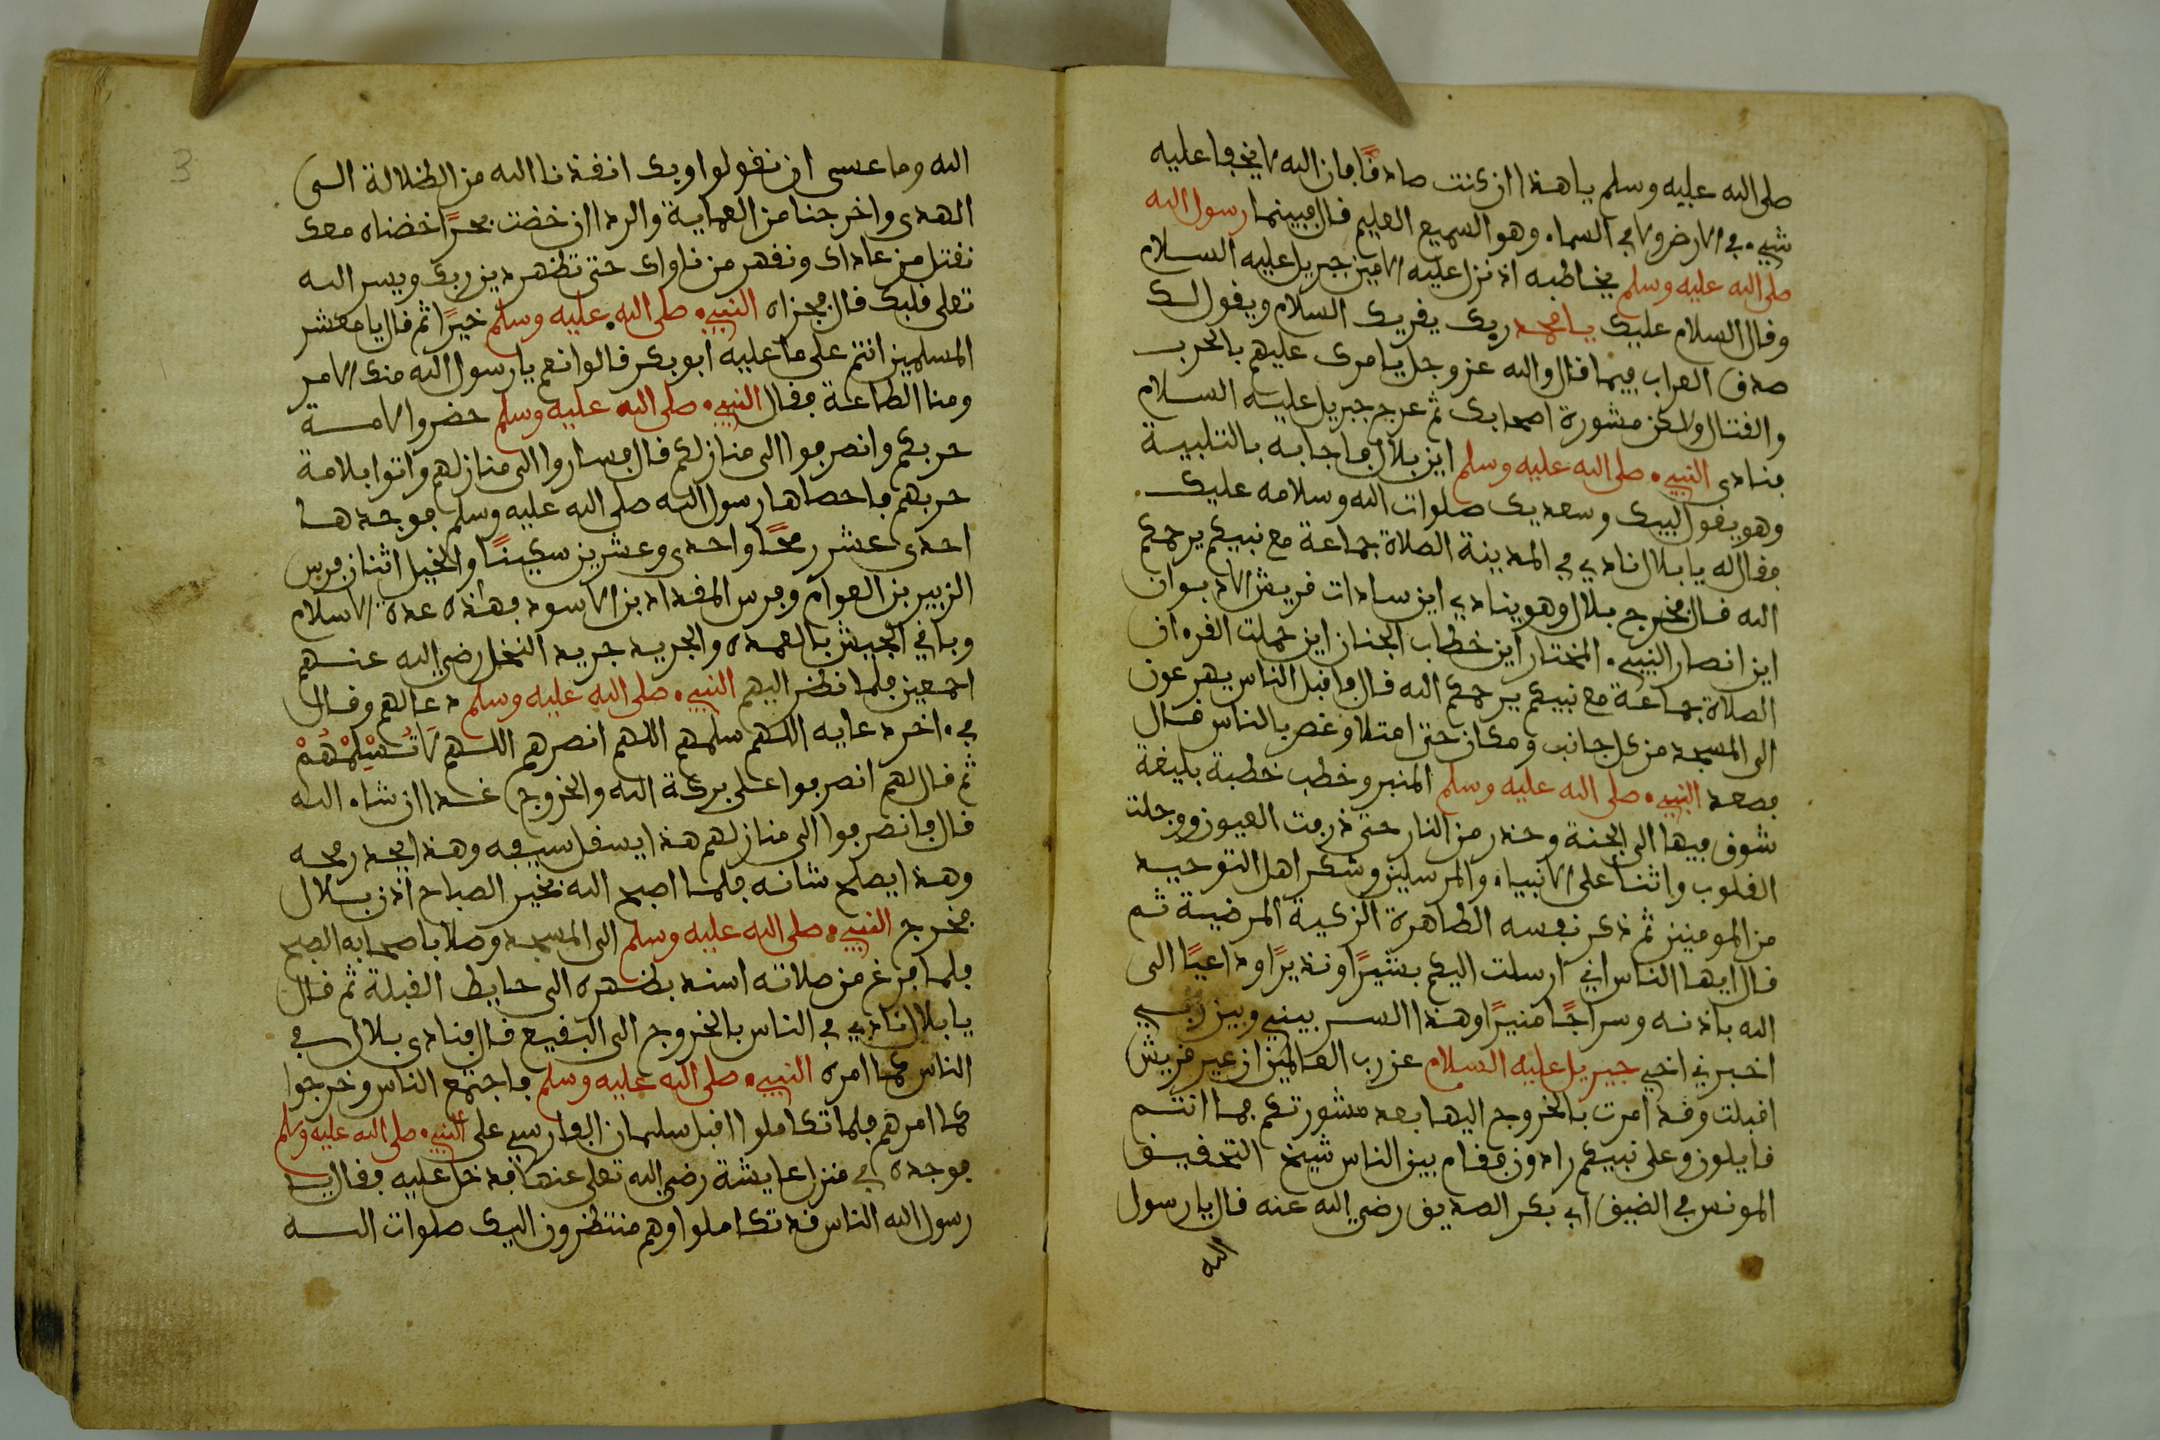 صلى الله عليه وسلم يا هذا ان كنت صادفًا فان الله لا يخفا عليه
شيء في الارض ولا في السماء وهو السميع العليم فال فبينما رسول الله
صلى الله عليه وسلم يخاطبه اذ نزل عليه الامين جبريل عليه السلام
وفال السلام عليك يا محمد ربك يفريك السلام ويفول لك
صدق العراب فيما فال والله عز وجل يامرك عليهم بالحرب
والفتال ولاكن مشورة اصحابك ثم عرج جبريل عليه السلام
فنادى النبيء صلى الله عليه وسلم اين بلال فاجابه بالتلبية
وهو يفول لبيك وسعديك صلوات الله وسلامه عليك
ففال له يا بلال نادي في المدينة الصلاة جماعة مع نبيكم يرحمكم
الله فال فخرج بلال وهو ينادي اين سادات فريش الادبوان
اين انصار النبيء المختار اين خطاب الجنان اين حملت الفرءان
الصلاة جماعة مع نبيكم يرحمكم الله فال فافبل الناس يهرعون
الى المسجد من كل جانب ومكان حتى امتلا وغص بالناس فال
فصعد النبيء صلى الله عليه وسلم المنبر وخطب خطبة بليغة
شوف فيها الى الجنة وحذر من النار حتى ذرفت العيون ووجلت
الفلوب واثنا على الانبياء والمرسلين وشكر اهل التوحيد
من المومنين ثم ذكر نفسه الطاهرة الزكية المرضية ثم
فال ايها الناس اني ارسلت اليكم بشيرًا ونذيرًا وداعيًا الى
الله باذنه وسراجًا منيرًا وهذا السر بيني وبين ربي
اخبرني اخي جبريل عليه السلام عن رب العالمين ان عير فريش
افبلت وفد امرت بالخروج اليها بعد مشورتكم فما انتم
فايلون وعلى نبيكم رادون ففام بين الناس شيخ التحفيف
المونس في الضيق ابي بكر الصديق رضي الله عنه فال يا رسول
الله
3
الله وما عسى ان نفولوا وبك انفذنا الله من الضلالة الى
الهدى واخرجنا من العماية والردا ان خضت بحرًا خضناه معك
نفتل من عاداك ونفهر من ناواك حتى تظهر دين ربك ويسر الله
تعلى فلبك فال فجزاه النبيء صلى الله عليه وسلم خيرًا ثم فال يا معشر
المسلمين انتم على ما عليه ابو بكر فالوا نعم يا رسول الله منك الامر
ومنا الطاعة ففال النبيء صلى الله عليه وسلم حضروا لامة
حربكم وانصرفوا الى منازلكم فال فساروا الى منازلهم واتوا بلامة
حربهم فاحصاها رسول الله صلى الله عليه وسلم فوجدها
احدى عشر رمحًا واحدى وعشرين سكينًا والخيل اثنان فرس
الزبير بن العوام وفرس المفداد بن الاسود فهذه عدة الاسلام
وبافي الجيش بالعمده والجريد جريد النخل رضي الله عنهم
اجمعين فلما نظر اليهم النبيء صلى الله عليه وسلم دعا لهم وفال
في ءاخر دعايه اللهم سلمهم اللهم انصرهم اللهم لا تُسْلِمْهُمْ
ثم فال لهم انصرفوا على بركة الله والخروج غدا ان شاء الله
فال فانصرفوا الى منازلهم هذا يسفل سيفه وهذا يحد رمحه
وهذا يصلح شانه فلما اصبح الله بخير الصباح اذن بلال
فخرج النبيء صلى الله عليه وسلم الى المسجد وصلا باصحابه الصبح
فلما فرغ من صلاته اسند بظهره الى حايط الفبلة ثم فال
يا بلال نادي في الناس بالخروج الى البفيع فال فنادى بلال في
الناس كما امره النبيء صلى الله عليه وسلم فاجتمع الناس وخرجوا
كما امرهم فلما تكاملوا افبل سليمان الفارسي على النبيء صلى الله عليه وسلم
فوجده في منزل عايشة رضي الله تعلى عنها فدخل عليه ففال يا
رسول الله الناس فد تكاملوا وهم منتظرون اليك صلوات الله